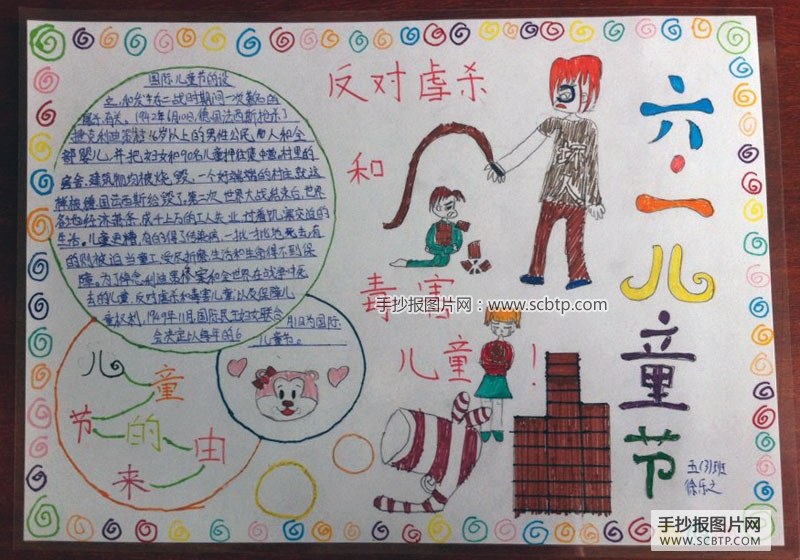 国际儿童节的设
立,和发生在二战时期间一次著名的
屠杀有关。1942年6月10日,德国法西斯枪杀了
捷克利迪策村16岁以上的男性公民,和全
部婴儿,并把妇女和90名儿童押往集中营。村里的
房舍、建筑物均被烧毁,一个好端端的村庄就这
样被德国法西斯给毁了。第二次世界大战结束后,世界
各地经济萧条,成千上万的工人失业,过着饥寒交迫的
生活。儿童更糟,有的得了传染病,一批批地死去;有
的则被迫当童工,受尽折磨,生活和生命得不到保
障。为了悼念利迪策惨案和全世界在战争中死
去的儿童,反对虐杀和毒害儿童,以及保障儿
童权利,1949年11月国际民主妇女联合
会决定以每年的6
月1日为国际
儿童节。
儿童
节的由
来
反对虐杀
和
坏人
毒害
儿童!
六·一儿童节
五(3)班
徐乐之
手抄报图片网:www.scbtp.com
手抄报图片网
WWW.SCBTP.COM